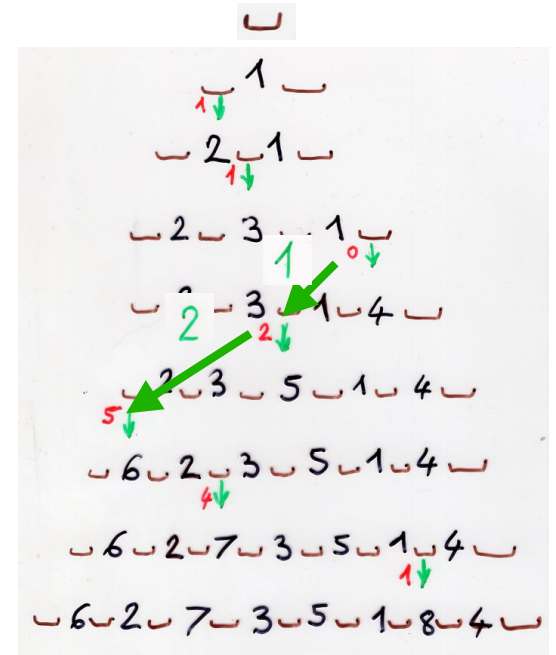 1
1
2 1
1
2 3 1
1 0
3 1 4
2 2
2 3 5 1 4
5
6 2 3 5 1 4
4
6 2 7 3 5 1 4
1
6 2 7 3 5 1 8 4